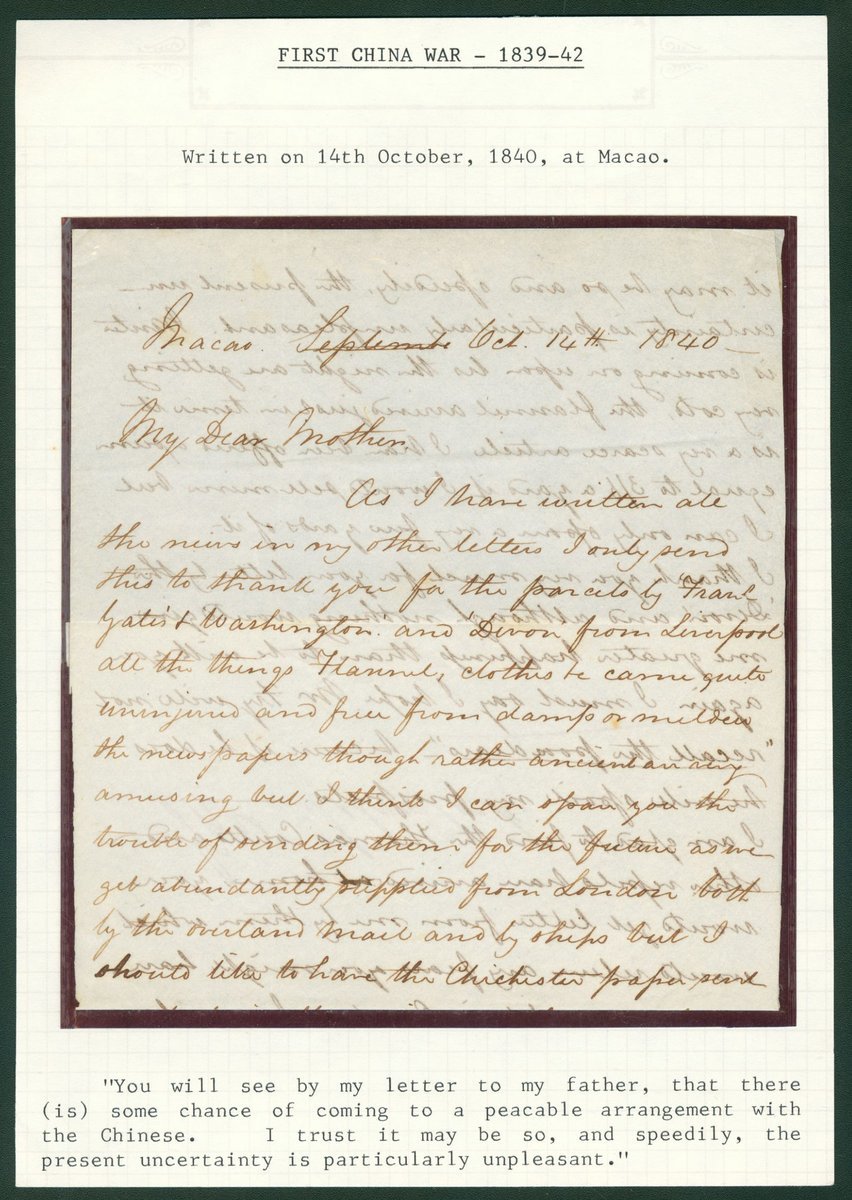 FIRST CHINA WAR - 1839-42
Written on 14th October, 1840, at Macao.
Macao. Septembe Oct. 14th 1840
My Dear Mother
As I have written all
the news in my other letters I only send
this to thank you for the parcels by
& Washington. and Devon from Liverpool
all the things Flannel, clothes &c came quite
uninjured and free from damp or mildew
the newspapers though rather ancient are very
amusing but I think I can spare you the
trouble of sending them for the future as we
get abundantly supplied from London both
by the overland mail and by ships but I
should like to have the Chichester paper send
"You will see by my letter to my father, that there
(is) some chance of coming to a peacable arrangement with
the Chinese. I trust it may be so, and speedily, the
present uncertainty is particularly unpleasant."